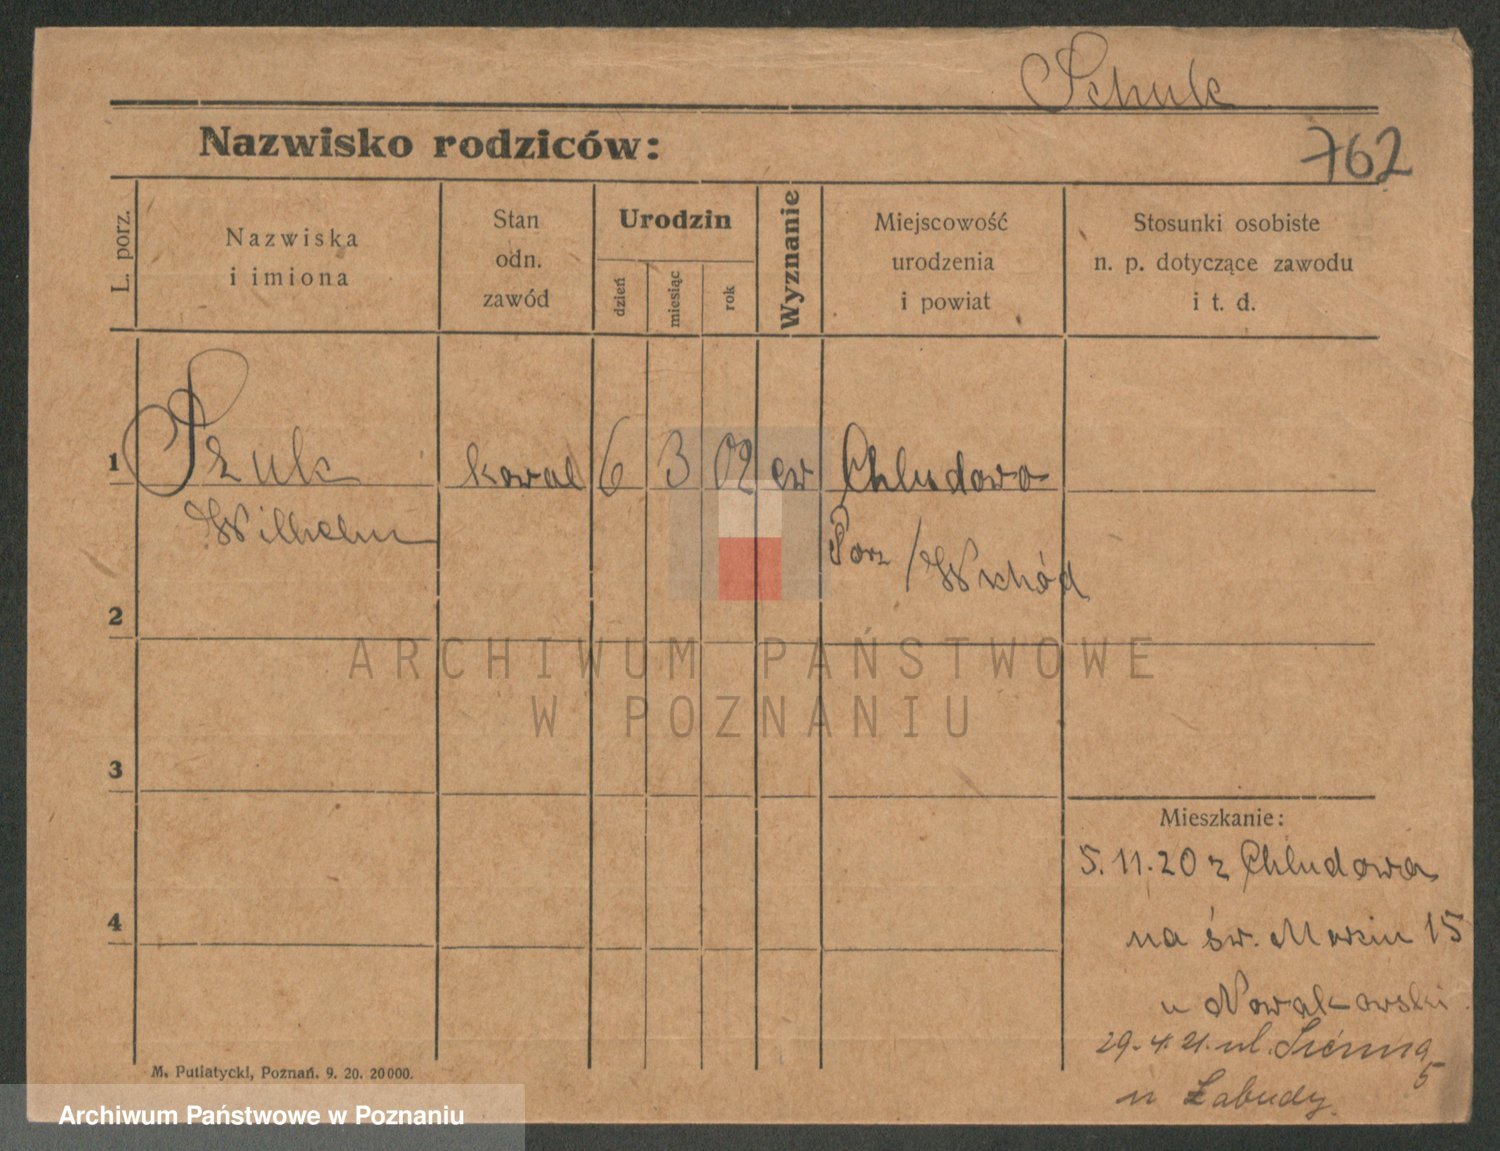 Schulz
Nazwisko rodziców:
762
L. porz.
Nazwiska
i imiona
Stan
odn.
zawód
Urodzin
dzień
miesiąc
rok
Wyznanie
Miejscowość
urodzenia
i powiat
Stosunki osobiste
n. p. dotyczące zawodu
i t. d.
1
Szulc kowal 6 3 02 ew Chludowo
Wilhelm
Poz / Wschód
2
ARCHIWUM PAŃSTWOWE
W POZNANIU
3
Mieszkanie:
5.11.20 z Chludowa
4
na św. Marcin 15
u Nowakowski
29.4.21. ul. Sienna
5
u Łabudy.
M. Putiatycki, Poznań. 9. 20. 20000.
Archiwum Państwowe w Poznaniu